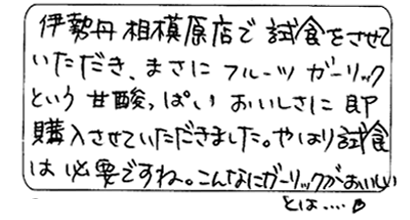 伊勢丹相模原店で試食をさせて
いただき、まさにフルーツガーリック
という甘酸っぱいおいしさに即
購入させていただきました。やはり試食
は必要ですね。こんなにガーリックがおいしい
とは....